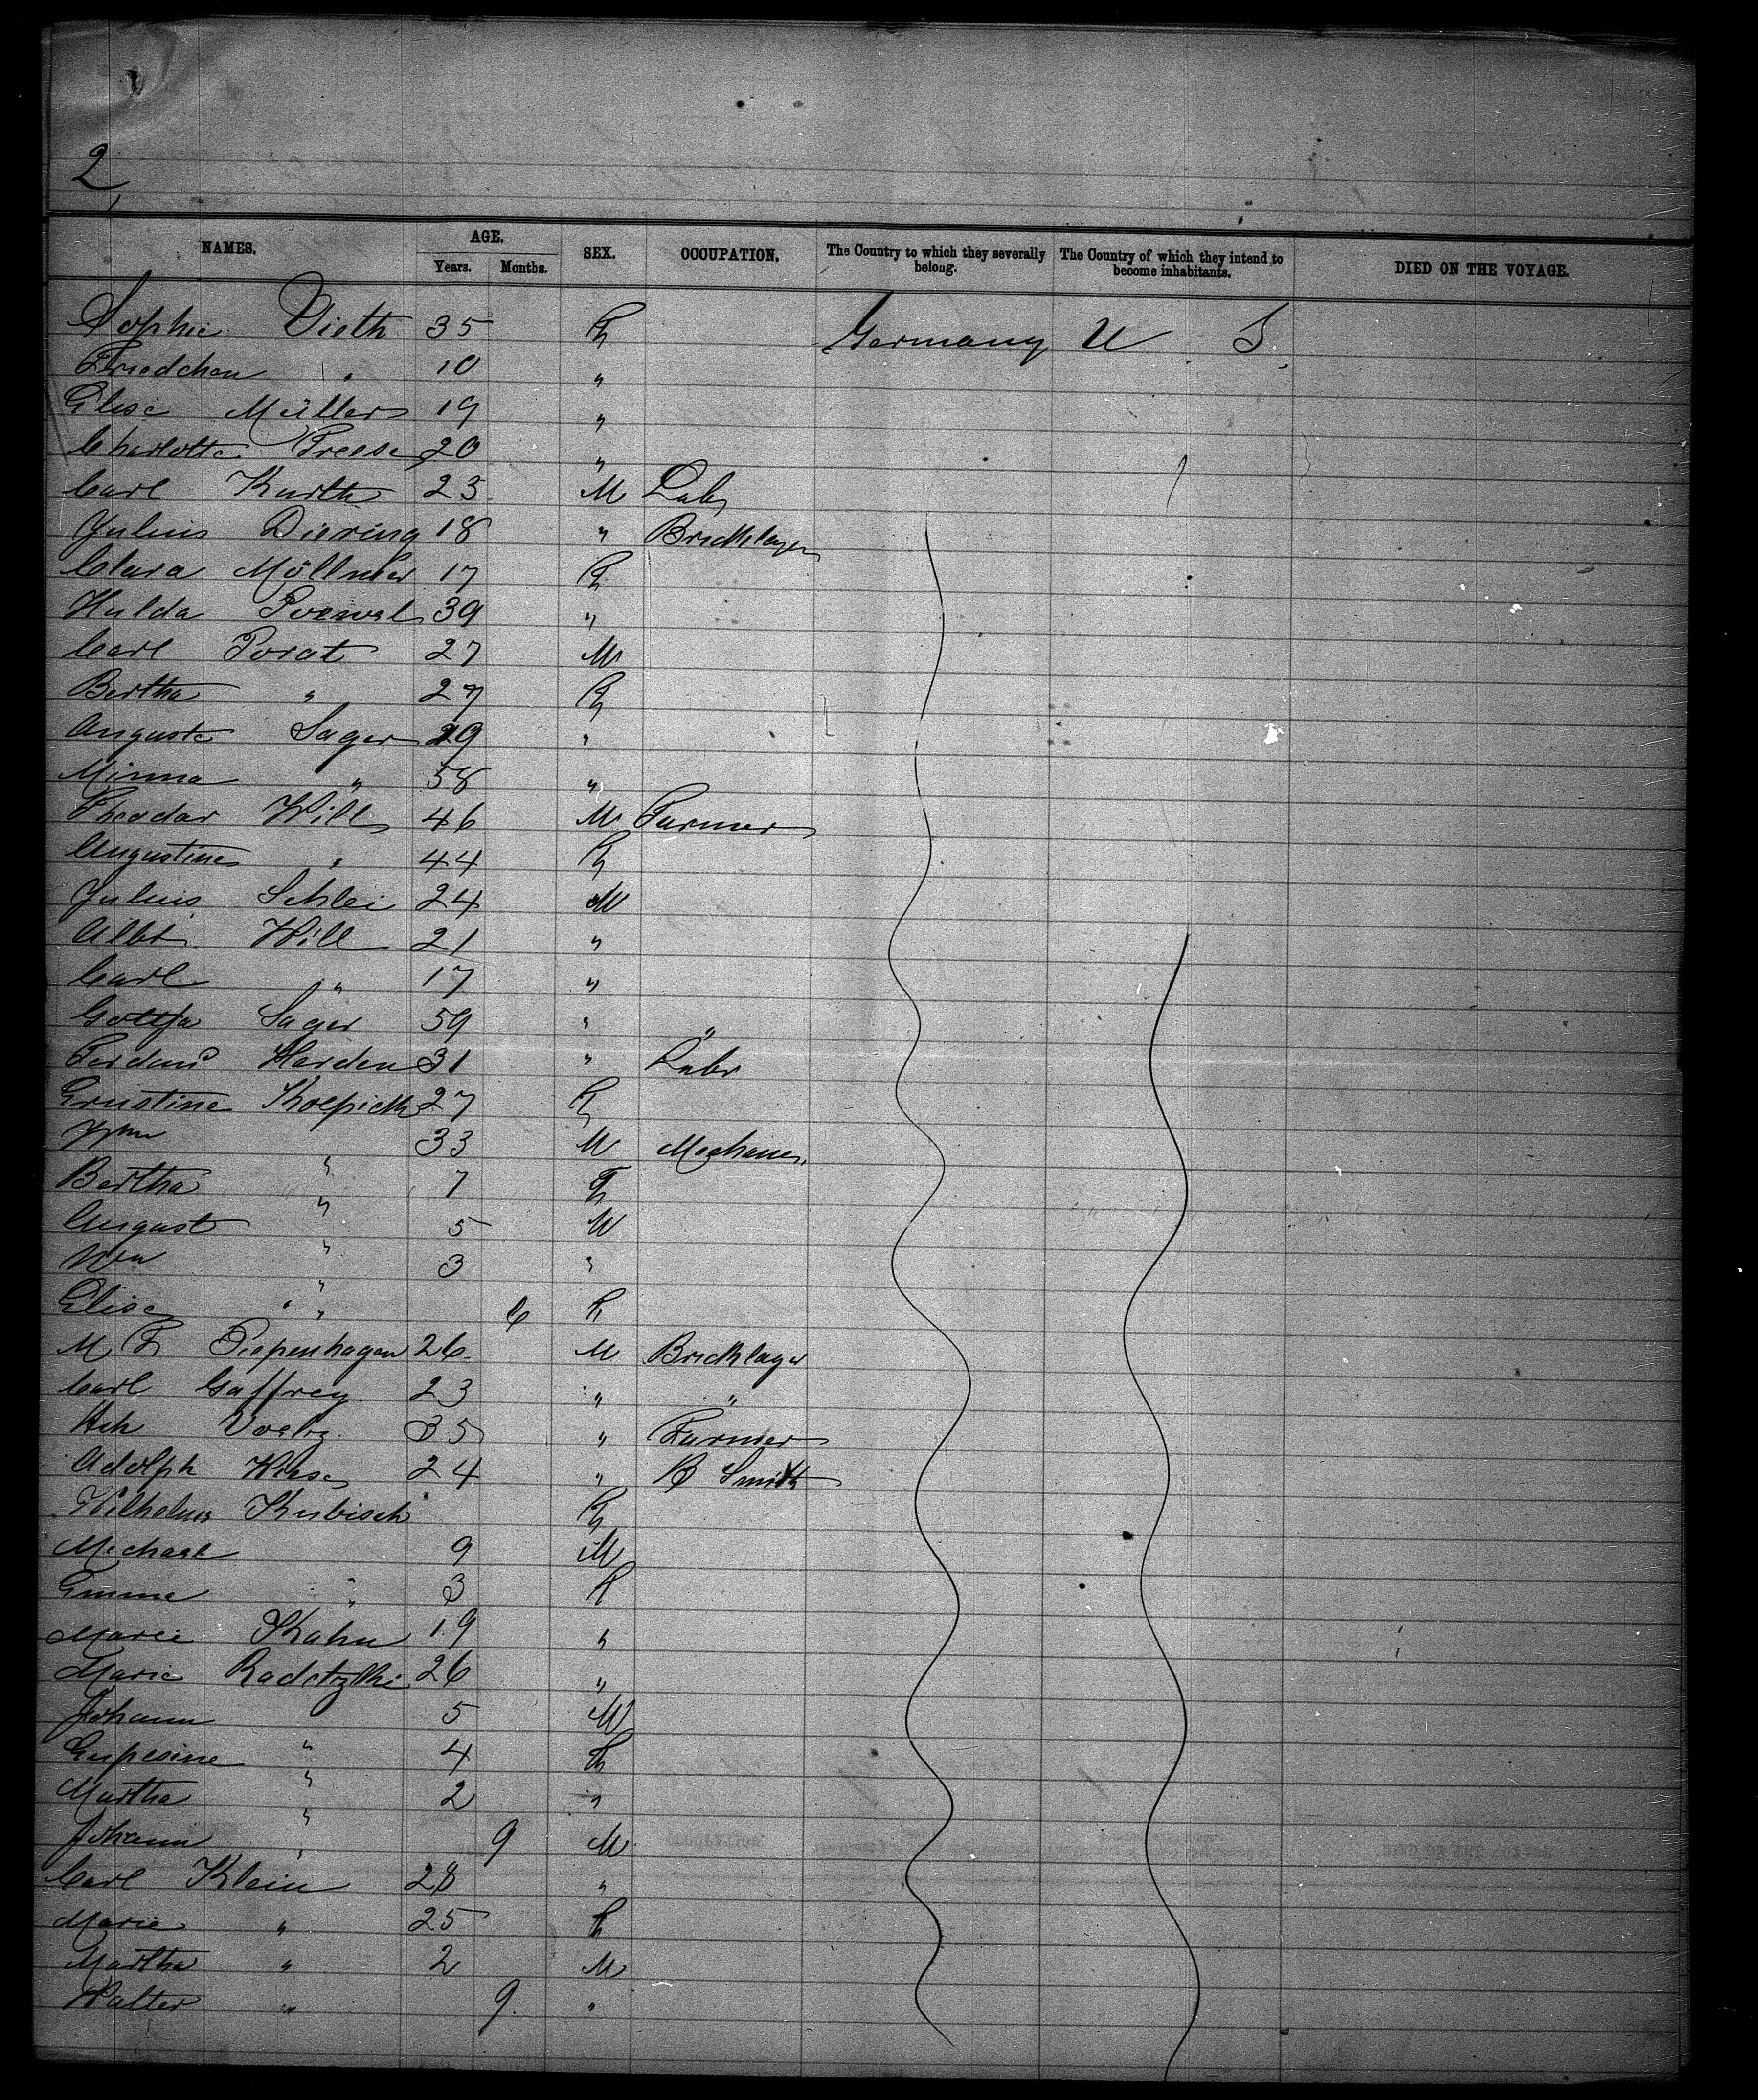 2
NAMES. AGE. SEX. OCCUPATION. The Country to which they severally belong. The Country of which they intend to become inhabitants. DIED ON THE VOYAGE.
Years. Months.
Sophie Vieth 35 F Germany U S.
Friedchen " 10 "
Elise Müller 19 "
Charlotte Preese 20 "
Carl Kurth 23 M Labr
Julius Diering 18 " Bricklayer
Clara Möllmer 17 F
Hulda 39 "
Carl Porat 27 M
Bertha " 27 F
Auguste Sager 29 "
Minna " 58 "
Theodor Will 46 M Farmer
Augustine " 44 F
Julius Schlei 24 M
Albt Will 21 "
Carl " 17 "
Sager 59 " "
Ferdind Harden 31 " Labr
Ernstine Koepick 27 F
33 M
Bertha " 7 F
August " 5 M
Wm " 3 "
Elise " 6 F
M F Piepenhagen 26 M Bricklayer
Carl Gaffrey 23 " "
Hch 35 " Farmer
Adolph 24 " B Smith
Wilhelm Kubisch F
Michael 9 M
Emma " 3 F
Marie Kahn 19 "
Marie Radetzki 26 "
Johann " 5 M
" 4 F
Martha " 2 "
Johann " 9 M
Carl Klein 28 "
Marie " 25 F
Martha " 2 M
Walter " 9. "